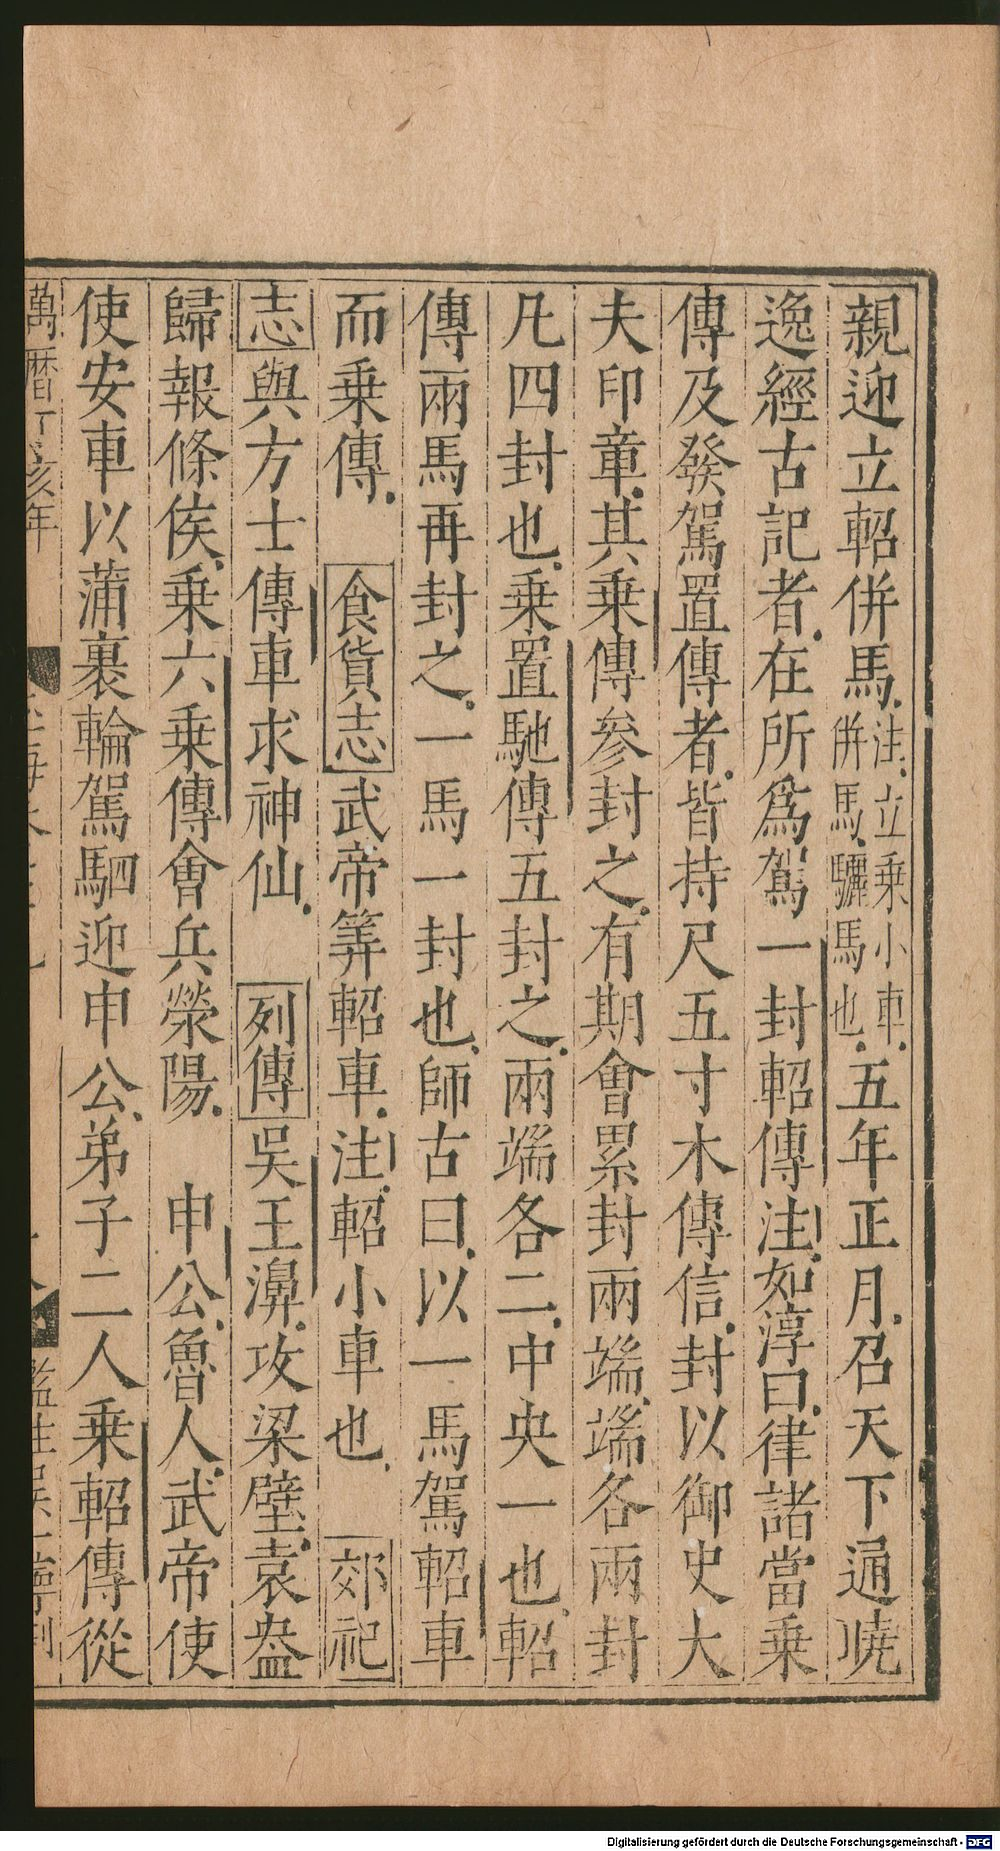 親迎立軺併馬注立乘小車併馬驪馬也五年正月召天下通曉
逸經古記者在所爲駕一封軺傳注如淳曰律諸當乘
傳及發駕置傳者皆持尺五寸木傳信封以御史大
夫印章其乘傳參封之有期會累封兩端端各兩封
凡四封也乘置馳傳五封之兩端各二中央一也軺
傳兩馬再封之一馬一封也師古曰以一馬駕軺車
而乘傳 食貨志武帝筭軺車注軺小車也 郊祀
志與方士傳車求神仙 列傳吳王濞攻梁壁袁盎
歸報條侯乘六乘傳會兵滎陽 申公魯人武帝使
使安車以蒲裹輪駕駟迎申公弟子二人乘軺傳從
萬曆丁亥年
Digitalisierung gefördert durch die Deutsche Forschungsgemeinschaft - DFG